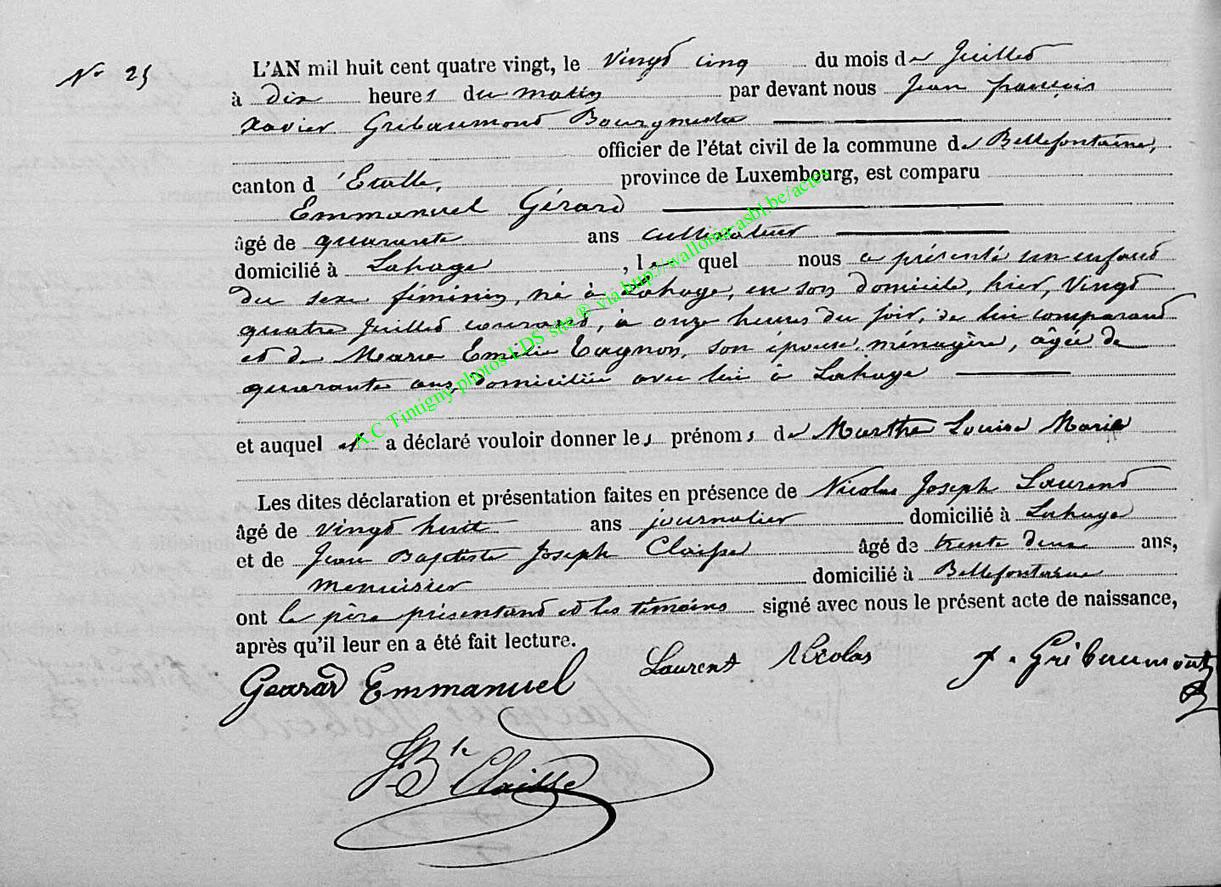 N° 25
L'AN mil huit cent quatre vingt, le vingt cinq du mois de Juillet
à dix heures du matin par devant nous Jean françois
Xavier Gribaumont Bourgmestre
officier de l'état civil de la commune de Bellefontaine,
canton d'Etalle, province de Luxembourg, est comparu
Emmanuel Gérard
âgé de quarante ans cultivateur
domicilié à Lahage, lequel nous a présenté un enfant
du sexe féminin, né à Lahage, en son domicile, hier, vingt
quatre Juillet courant, à onze heures du soir, de lui comparant
et de Marie Emélie Tagnon, son épouse, ménagère, âgée de
quarante ans, domiciliée avec lui à Lahage
et auquel il a déclaré vouloir donner les prénoms de Marthe Louise Marie
Les dites déclaration et présentation faites en présence de Nicolas Joseph Laurent
âgé de vingt huit ans journalier domicilié à Lahage
et de Jean Baptiste Joseph Claisse âgé de trente deux ans,
menuisier domicilié à Bellefontaine
ont le père présentant et les témoins signé avec nous le présent acte de naissance,
après qu'il leur en a été fait lecture.
Gerard Emmanuel Laurent Nicolas J. Gribaumont
J. Bte Claisse
A.C Tintigny photos LDS site® via http://wallonia-asbl.be/actes